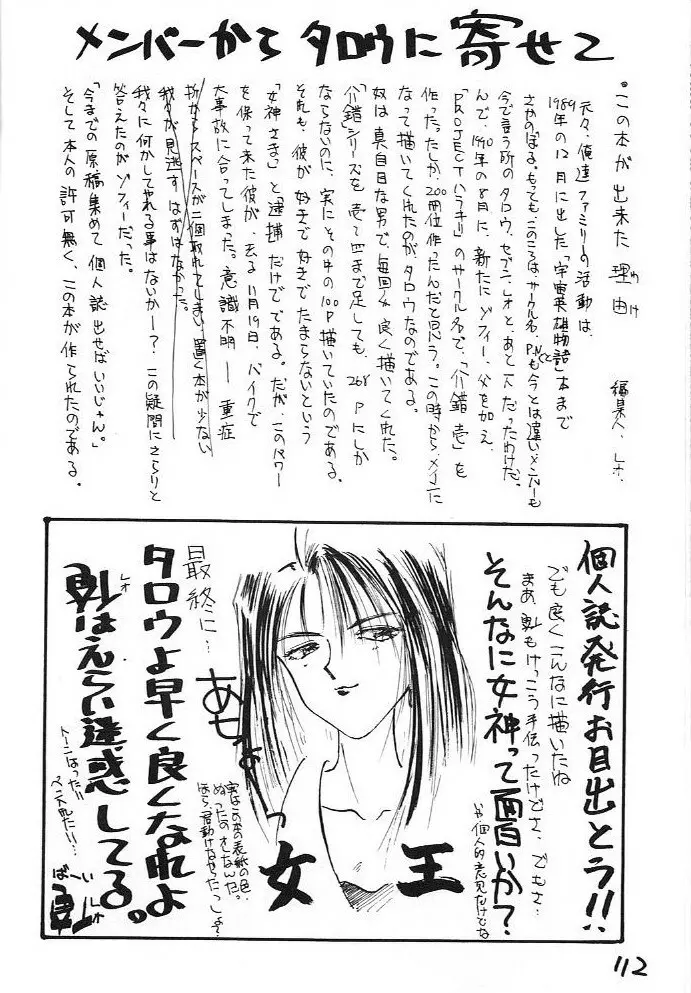 メンバーからタロウに寄せて
。この本が出来た理由
わけ
編集人、レオ
元々、俺達ファミリーの活動は、
1989年の12月に出した「宇宙英雄物語」本まで
さかのぼる。もっても、このころは、サークル名、P.Nも今とは違いメンバーも
今で言う所のタロウ、セブン、レオと、あと一人だったわけだ。
んで、1990年の8月に、新たにゾフィー、父を加え、
「PROJECTハラキリ」のサークル名で、「介錯壱」を
作った。たしか、200冊位作ったんだと思う。この時から、メインに
なって描いてくれたのが、タロウなのである。
奴は真面目な男で、毎回々良く描いてくれた。
「介錯」シリーズを壱~四まで足しても、268Pにしか
ならないのに、実にその中の100P描いていたのである。
それも、彼が好きで好きでたまらないという
「女神さま」と「逮捕」だけでである。だが、このパワー
を保って来た彼が、去る11月19日、バイクで
大事故に合ってしまった。意識不明──重症
折からスペースが二個取れてしまい、置く本が少ない
我々が見逃すはずはなかった。
我々に何かしてやれる事はないかー?、この疑問にさらりと
答えたのがゾフィーだった。
「今までの原稿集めて個人誌出せばいいじゃん。」
そして本人の許可無く、この本が作られたのである。
個人誌発行お目出とう!!
でも良くこんなに描いたね
まあ、私もけっこう手伝ったけどさ、でもさ…
そんなに女神って面白いか?
いや、個人的意見だけどな
王
女
っ
実はこの本の表紙の色、
ぬったのオレなんだ。
ほら、君動けなかったっしょ?
あせっ
最終に…
タロウよ早く良くなれよ
レオ
私はえらい迷惑してる。
トーンはったり!
ペン入れたり!…
ばーい
レオ
112